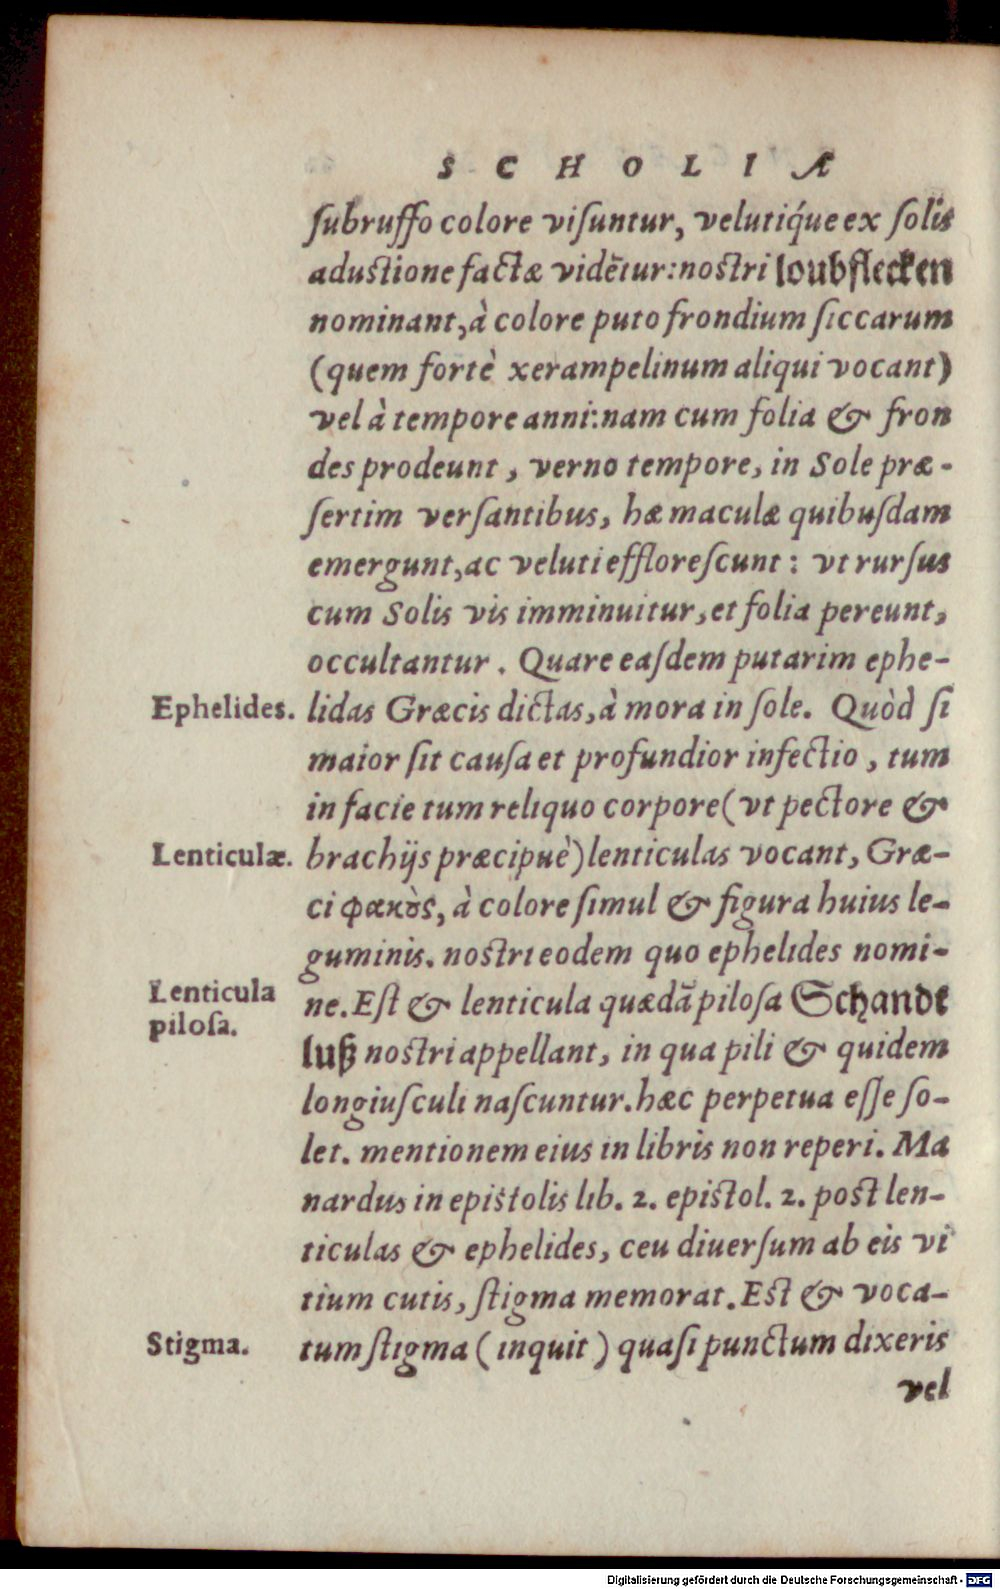 S C H O L I Æ
ſubruffo colore viſuntur, velutiq́ue ex ſolis
adustione factæ vidētur: nostri loubflecken
nominant, à colore puto frondium ſiccarum
(quem fortè xerampelinum aliqui vocant)
vel à tempore anni: nam cum folia & fron
des prodeunt, verno tempore, in Sole præ-
ſertim verſantibus, hæ maculæ quibuſdam
emergunt, ac veluti effloreſcunt: vt rurſus
cum Solis vis imminuitur, et folia pereunt,
occultantur. Quare eaſdem putarim ephe-
Ephelides. lidas Græcis dictas, à mora in ſole. Quòd ſi
maior ſit cauſa et profundior infectio, tum
in facie tum reliquo corpore (vt pectore &
Lenticulæ. brachijs præcipuè) lenticulas vocant, Græ-
ci φακȣ̀ς, à colore ſimul & figura huius le-
guminis. nostri eodem quo ephelides nomi-
Lenticula piloſa. ne. Eſt & lenticula quædā piloſa Schandt
luß nostri appellant, in qua pili & quidem
longiuſculi naſcuntur. hæc perpetua eſſe ſo-
let. mentionem eius in libris non reperi. Ma
nardus in epistolis lib. 2. epistol. 2. post len-
ticulas & ephelides, ceu diuerſum ab eis vi
tium cutis, ſtigma memorat. Est & voca-
Stigma. tum ſtigma (inquit) quaſi punctum dixeris
vel
Digitalisierung gefördert durch die Deutsche Forschungsgemeinschaft - DFG